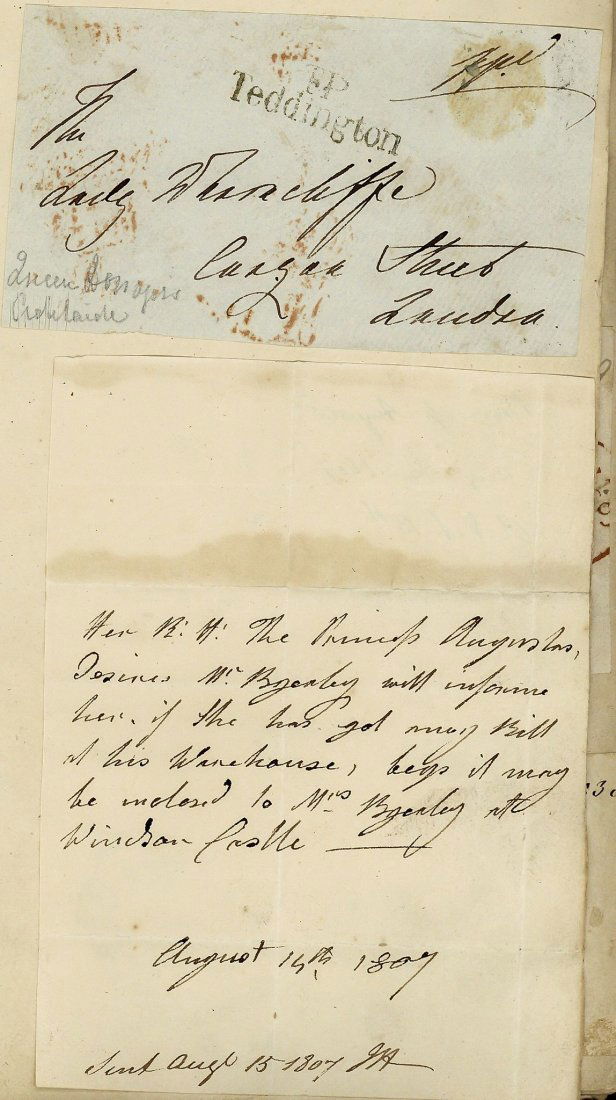 SP
Teddington
The
Lady Wharncliffe
Curzon Street
London.
Queen Dowager
Adelaide
Her R: H: The Princess Augusta,
Desires Mr. Byerley will informe
her. if She has got any Bill
at his Warehouse, begs it may
be inclosed to Mrs Byerley at
Windsor Castle
August 14th 1807
Sent Augt 15 1807 JH